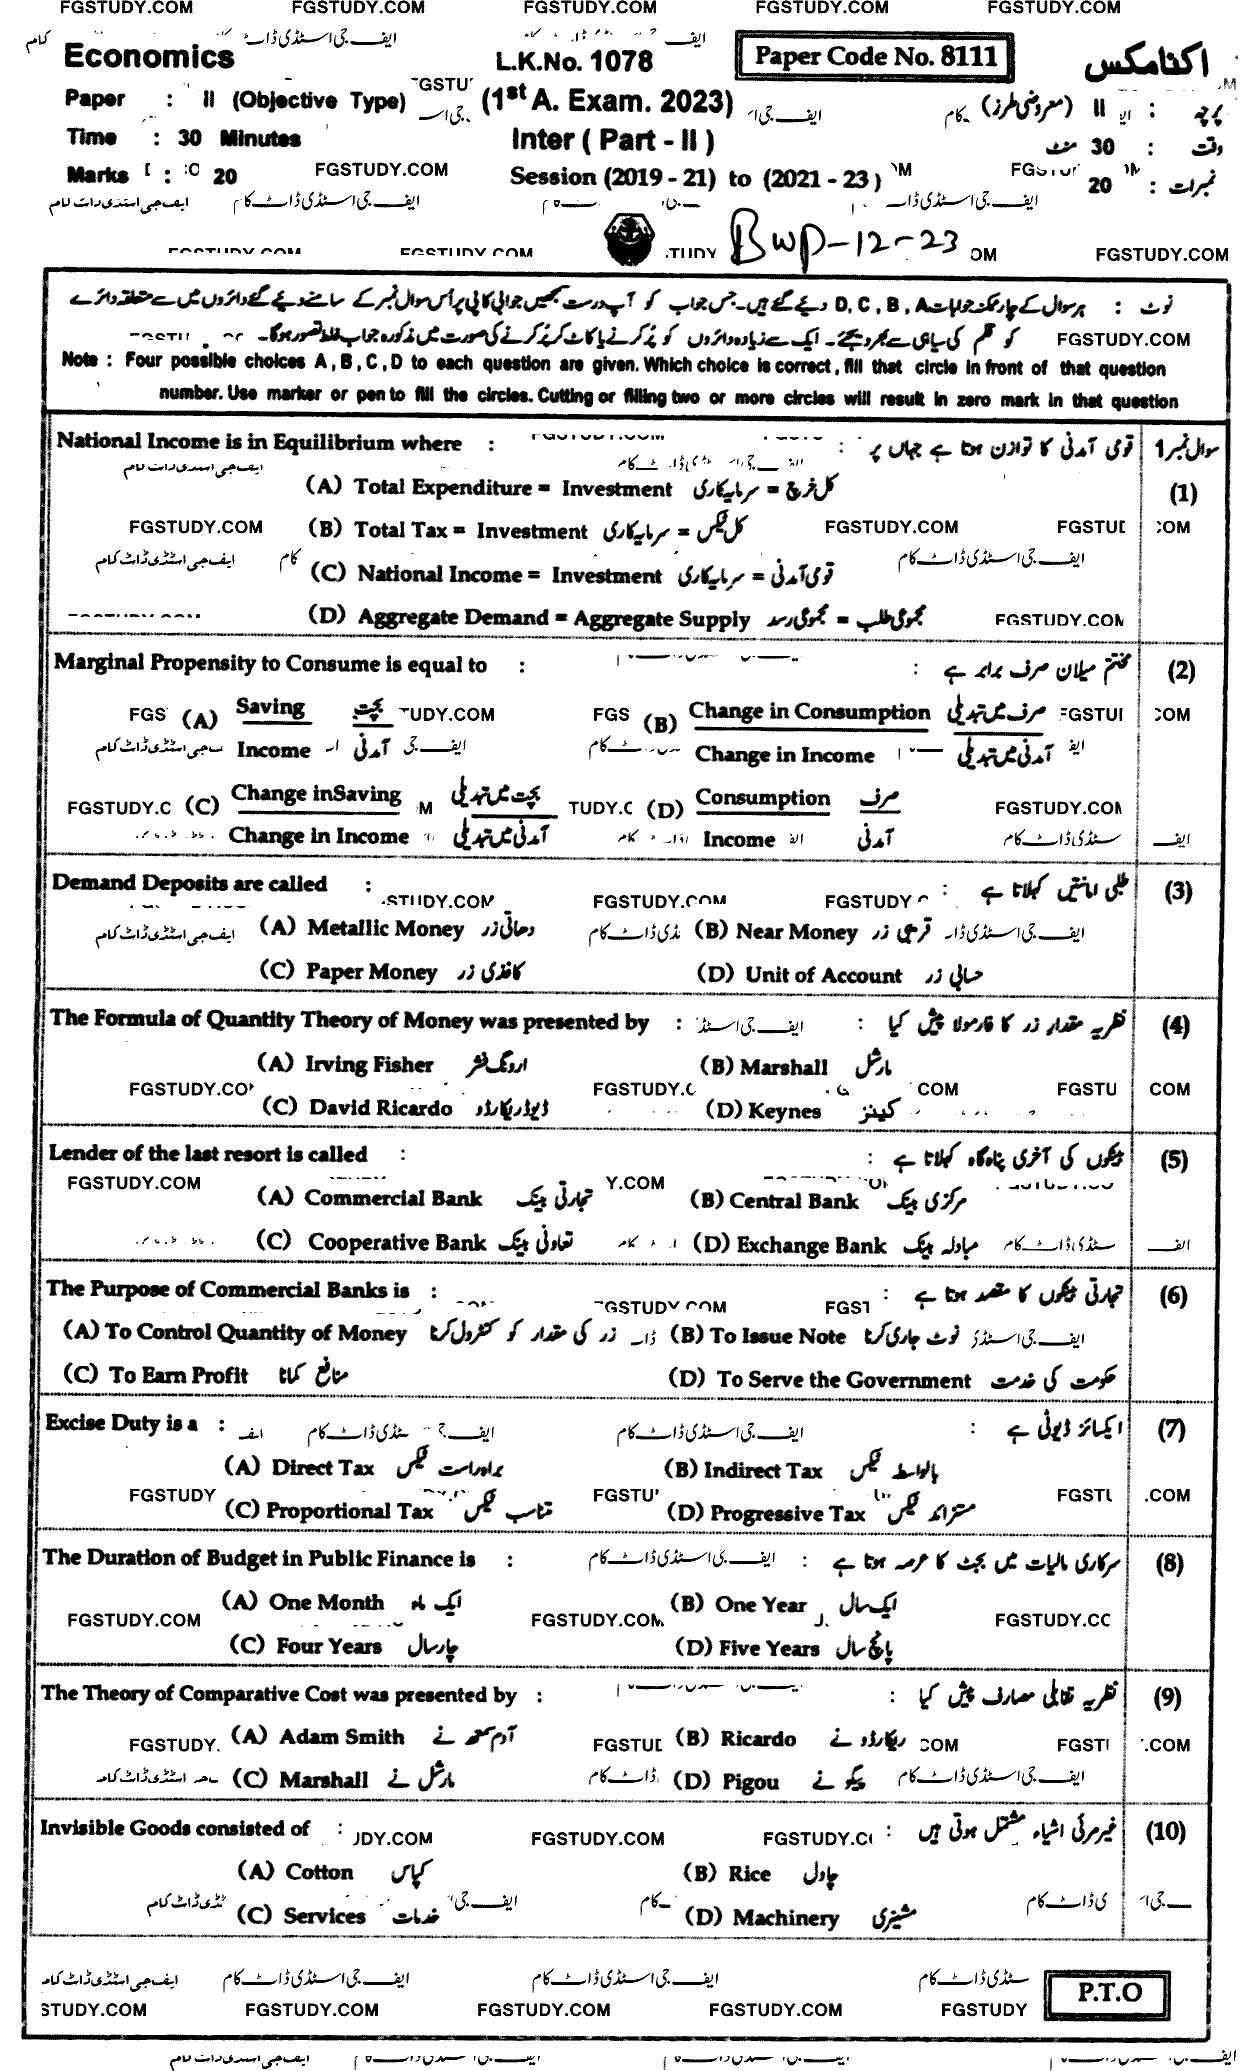 Economics
L.K.No. 1078
Paper Code No. 8111
اکنامکس
Paper : II (Objective Type)
(1st A. Exam. 2023)
پرچہ : II (معروضی طرز)
Time : 30 Minutes
Inter ( Part - II )
وقت : 30 منٹ
Marks : 20
Session (2019 - 21) to (2021 - 23)
نمبرات : 20
BWP-12-23
نوٹ : ہر سوال کے چار ممکنہ جوابات D, C, B, A دیئے گئے ہیں۔ جس جواب کو آپ درست سمجھیں جوابی کاپی پر اُس سوال نمبر کے سامنے دیئے گئے دائروں میں سے متعلقہ دائرے
کو قلم کی سیاہی سے بھر دیجئے۔ ایک سے زیادہ دائروں کو پُر کرنے یا کاٹ کر پُر کرنے کی صورت میں مذکورہ جواب غلط تصور ہوگا۔
Note : Four possible choices A, B, C, D to each question are given. Which choice is correct, fill that circle in front of that question
number. Use marker or pen to fill the circles. Cutting or filling two or more circles will result in zero mark in that question
National Income is in Equilibrium where : قومی آمدنی کا توازن ہوتا ہے جہاں پر : سوال نمبر 1
(A) Total Expenditure = Investment کل خرچ = سرمایہ کاری (1)
(B) Total Tax = Investment کل ٹیکس = سرمایہ کاری
(C) National Income = Investment قومی آمدنی = سرمایہ کاری
(D) Aggregate Demand = Aggregate Supply مجموعی طلب = مجموعی رسد
Marginal Propensity to Consume is equal to : مختتم میلان صرف برابر ہے : (2)
(A) Saving بچت (B) Change in Consumption صرف میں تبدیلی
Income آمدنی Change in Income آمدنی میں تبدیلی
(C) Change inSaving بچت میں تبدیلی (D) Consumption صرف
Change in Income آمدنی میں تبدیلی Income آمدنی
Demand Deposits are called : طلبی امانتیں کہلاتا ہے : (3)
(A) Metallic Money دھاتی زر (B) Near Money قریبی زر
(C) Paper Money کاغذی زر (D) Unit of Account حسابی زر
The Formula of Quantity Theory of Money was presented by : نظریہ مقدار زر کا فارمولا پیش کیا : (4)
(A) Irving Fisher ارونگ فشر (B) Marshall مارشل
(C) David Ricardo ڈیوڈ ریکارڈو (D) Keynes کینز
Lender of the last resort is called : بینکوں کی آخری پناہ گاہ کہلاتا ہے : (5)
(A) Commercial Bank تجارتی بینک (B) Central Bank مرکزی بینک
(C) Cooperative Bank تعاونی بینک (D) Exchange Bank مبادلہ بینک
The Purpose of Commercial Banks is : تجارتی بینکوں کا مقصد ہوتا ہے : (6)
(A) To Control Quantity of Money زر کی مقدار کو کنٹرول کرنا (B) To Issue Note نوٹ جاری کرنا
(C) To Earn Profit منافع کمانا (D) To Serve the Government حکومت کی خدمت
Excise Duty is a : ایکسائز ڈیوٹی ہے : (7)
(A) Direct Tax براہ راست ٹیکس (B) Indirect Tax بالواسطہ ٹیکس
(C) Proportional Tax متناسب ٹیکس (D) Progressive Tax متزائد ٹیکس
The Duration of Budget in Public Finance is : سرکاری مالیات میں بجٹ کا عرصہ ہوتا ہے : (8)
(A) One Month ایک ماہ (B) One Year ایک سال
(C) Four Years چار سال (D) Five Years پانچ سال
The Theory of Comparative Cost was presented by : نظریہ تقابلی مصارف پیش کیا : (9)
(A) Adam Smith آدم سمتھ نے (B) Ricardo ریکارڈو نے
(C) Marshall مارشل نے (D) Pigou پیگو نے
Invisible Goods consisted of : غیر مرئی اشیاء مشتمل ہوتی ہیں : (10)
(A) Cotton کپاس (B) Rice چاول
(C) Services خدمات (D) Machinery مشینری
P.T.O
FGSTUDY.COM
ایف جی اسٹڈی ڈاٹ کام